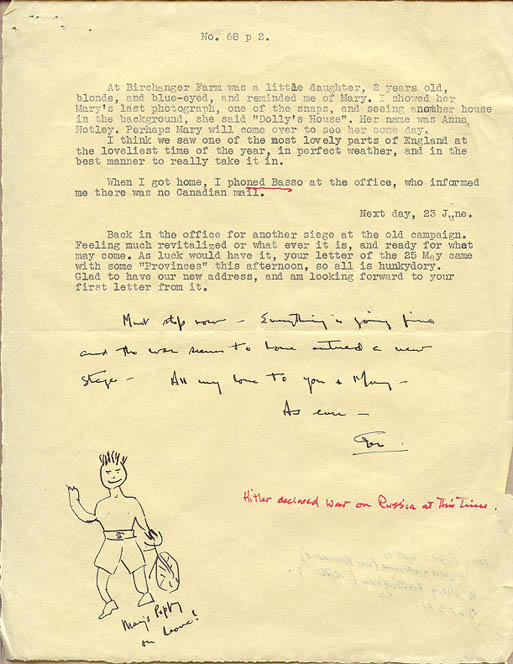 No. 68 p 2.
At Birchanger Farm was a little daughter, 2 years old,
blonde, and blue-eyed, and reminded me of Mary. I showed her
Mary's last photograph, one of the snaps, and seeing another house
in the background, she said "Dolly's House". Her name was Anna
Notley. Perhaps Mary will come over to see her some day.
I think we saw one of the most lovely parts of England at
the loveliest time of the year, in perfect weather, and in the
best manner to really take it in.
When I got home, I phoned Basso at the office, who informed
me there was no Canadian mail.
Next day, 23 June.
Back in the office for another siege at the old campaign.
Feeling much revitalized or what ever it is, and ready for what
may come. As luck would have it, your letter of the 25 May came
with some "Provinces" this afternoon, so all is hunkydory.
Glad to have our new address, and am looking forward to your
first letter from it.
Must stop now - Everything is going fine
and the war seems to have entered a new
stage - All my love to you & Mary -
As ever -
Hitler declared war on Russia at This Time.
Mary's Popty
on Leave!